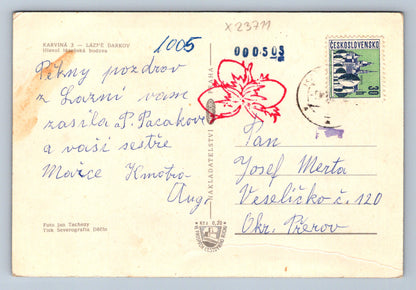 X 23711
KARVINÁ 3 — LÁZNĚ DARKOV
Hlavní lázeňská budova
1005
000503
ČESKOSLOVENSKO
30 h
Pěkny pozdrov
z Lazní vam
zasila P. Pacakova
a vaší sestře
Mařce Kmotra
Aug.
NAKLADATELSTVÍ PRAHA
Pan
Josef Merta
Veselíčko č. 120
Okr. Přerov
Foto Jan Tachezy
Tisk Severografia Děčín
Kčs 0,20